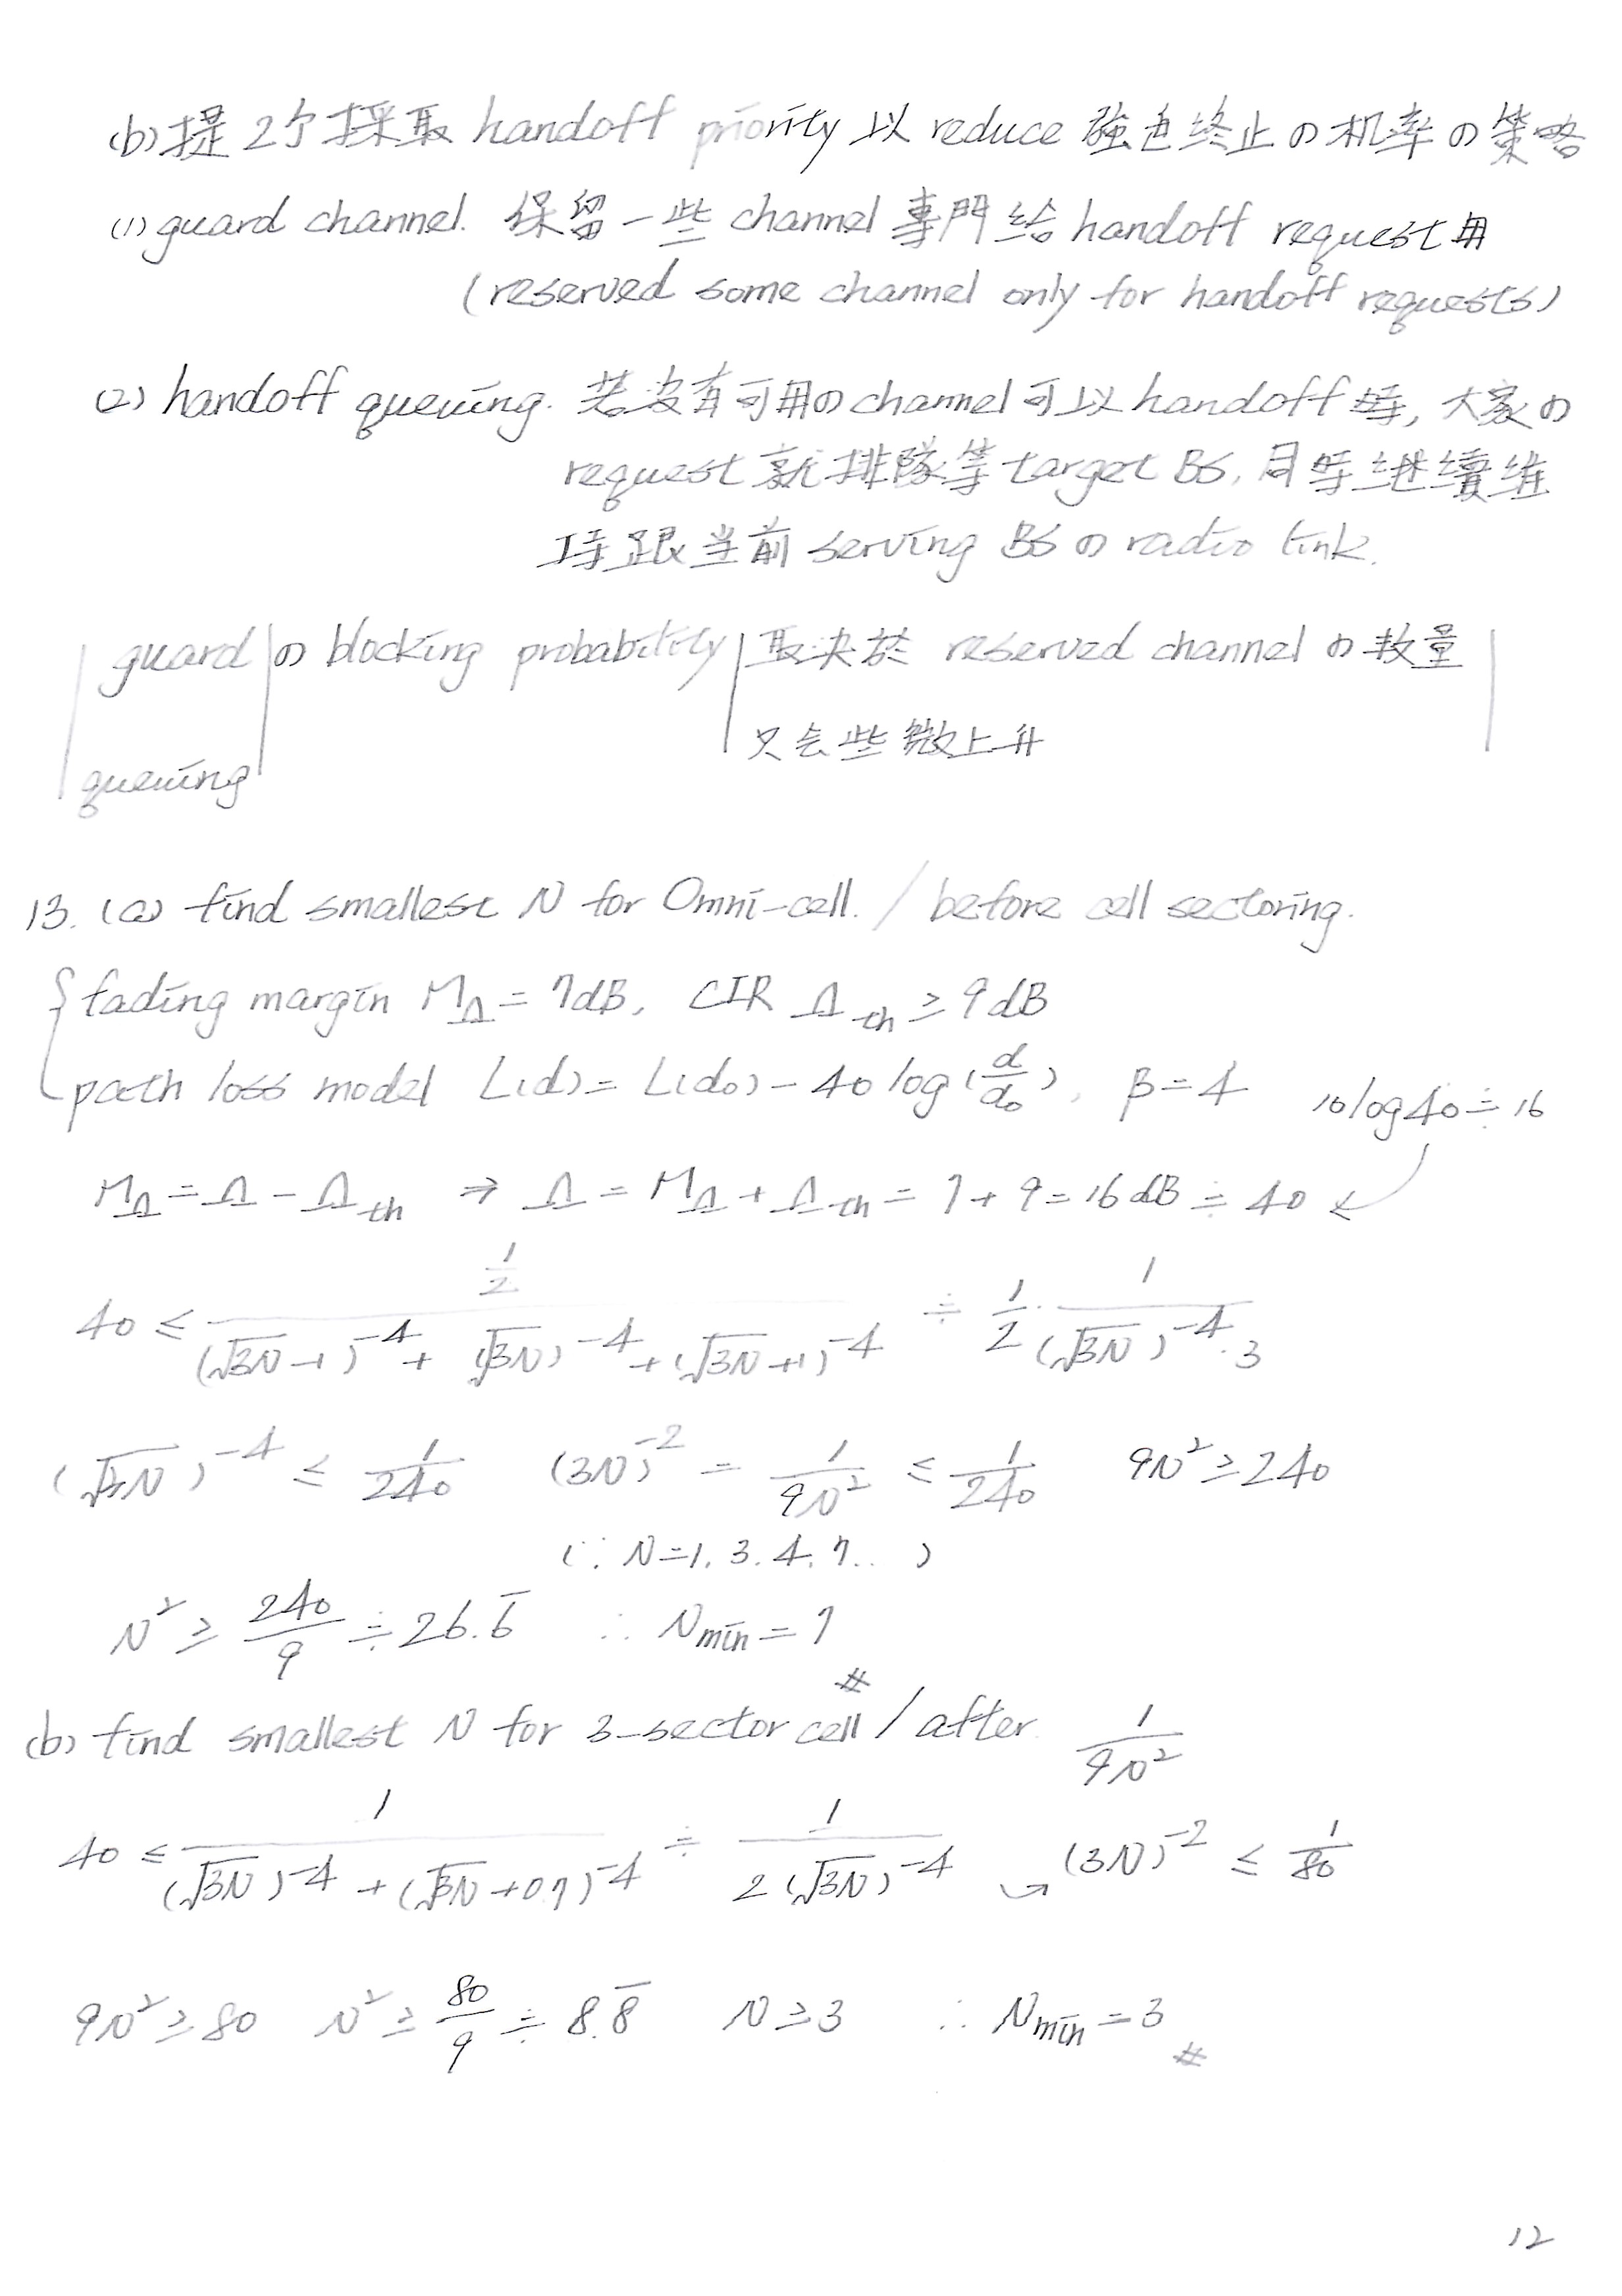 (b) 提2个採取 handoff priority 以 reduce 強迫終止の机率の策略
(1) guard channel. 保留一些 channel 專門給 handoff request 用
(reserved some channel only for handoff requests)
(2) handoff queuing. 若沒有可用の channel 可以 handoff 時, 大家の
request 就排隊等 target BS, 同時継續維
持跟当前 serving BS の radio link.
guard の blocking probability 取決於 reserved channel の数量
queuing 只会些微上升
13. (a) find smallest N for Omni-cell. / before cell sectoring.
fading margin M_Λ = 7dB, CIR Λ_th ≥ 9dB
path loss model L(d) = L(d₀) - 40 log(d/d₀), β = 4 10log40 ≒ 16
M_Λ = Λ - Λ_th ⇒ Λ = M_Λ + Λ_th = 7 + 9 = 16 dB ≒ 40
40 ≤ (1/2) / ((√3N - 1)^-4 + (√3N)^-4 + (√3N + 1)^-4) ≒ 1/2 · 1/((√3N)^-4 · 3)
(√3N)^-4 ≤ 1/240 (3N)^-2 = 1/9N² ≤ 1/240 9N² ≥ 240
(∵ N = 1, 3, 4, 7...)
N² ≥ 240/9 ≒ 26.6̅ ∴ N_min = 7 #
(b) find smallest N for 3-sector cell / after. 1/9N²
40 ≤ 1/((√3N)^-4 + (√3N + 0.7)^-4) ≒ 1/(2(√3N)^-4) (3N)^-2 ≤ 1/80
9N² ≥ 80 N² ≥ 80/9 ≒ 8.8̅ N ≥ 3 ∴ N_min = 3 #
12